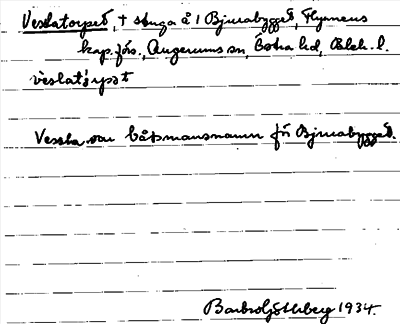 Vesslatorpet, † stuga å 1 Bjurabygget, Flymens
kap.förs., Augerums sn, Östra hd, Blek. l.
vèslatrpət
Vessla var båtsmansnamn för Bjurabygget.
Barbro Ljöthberg 1934.